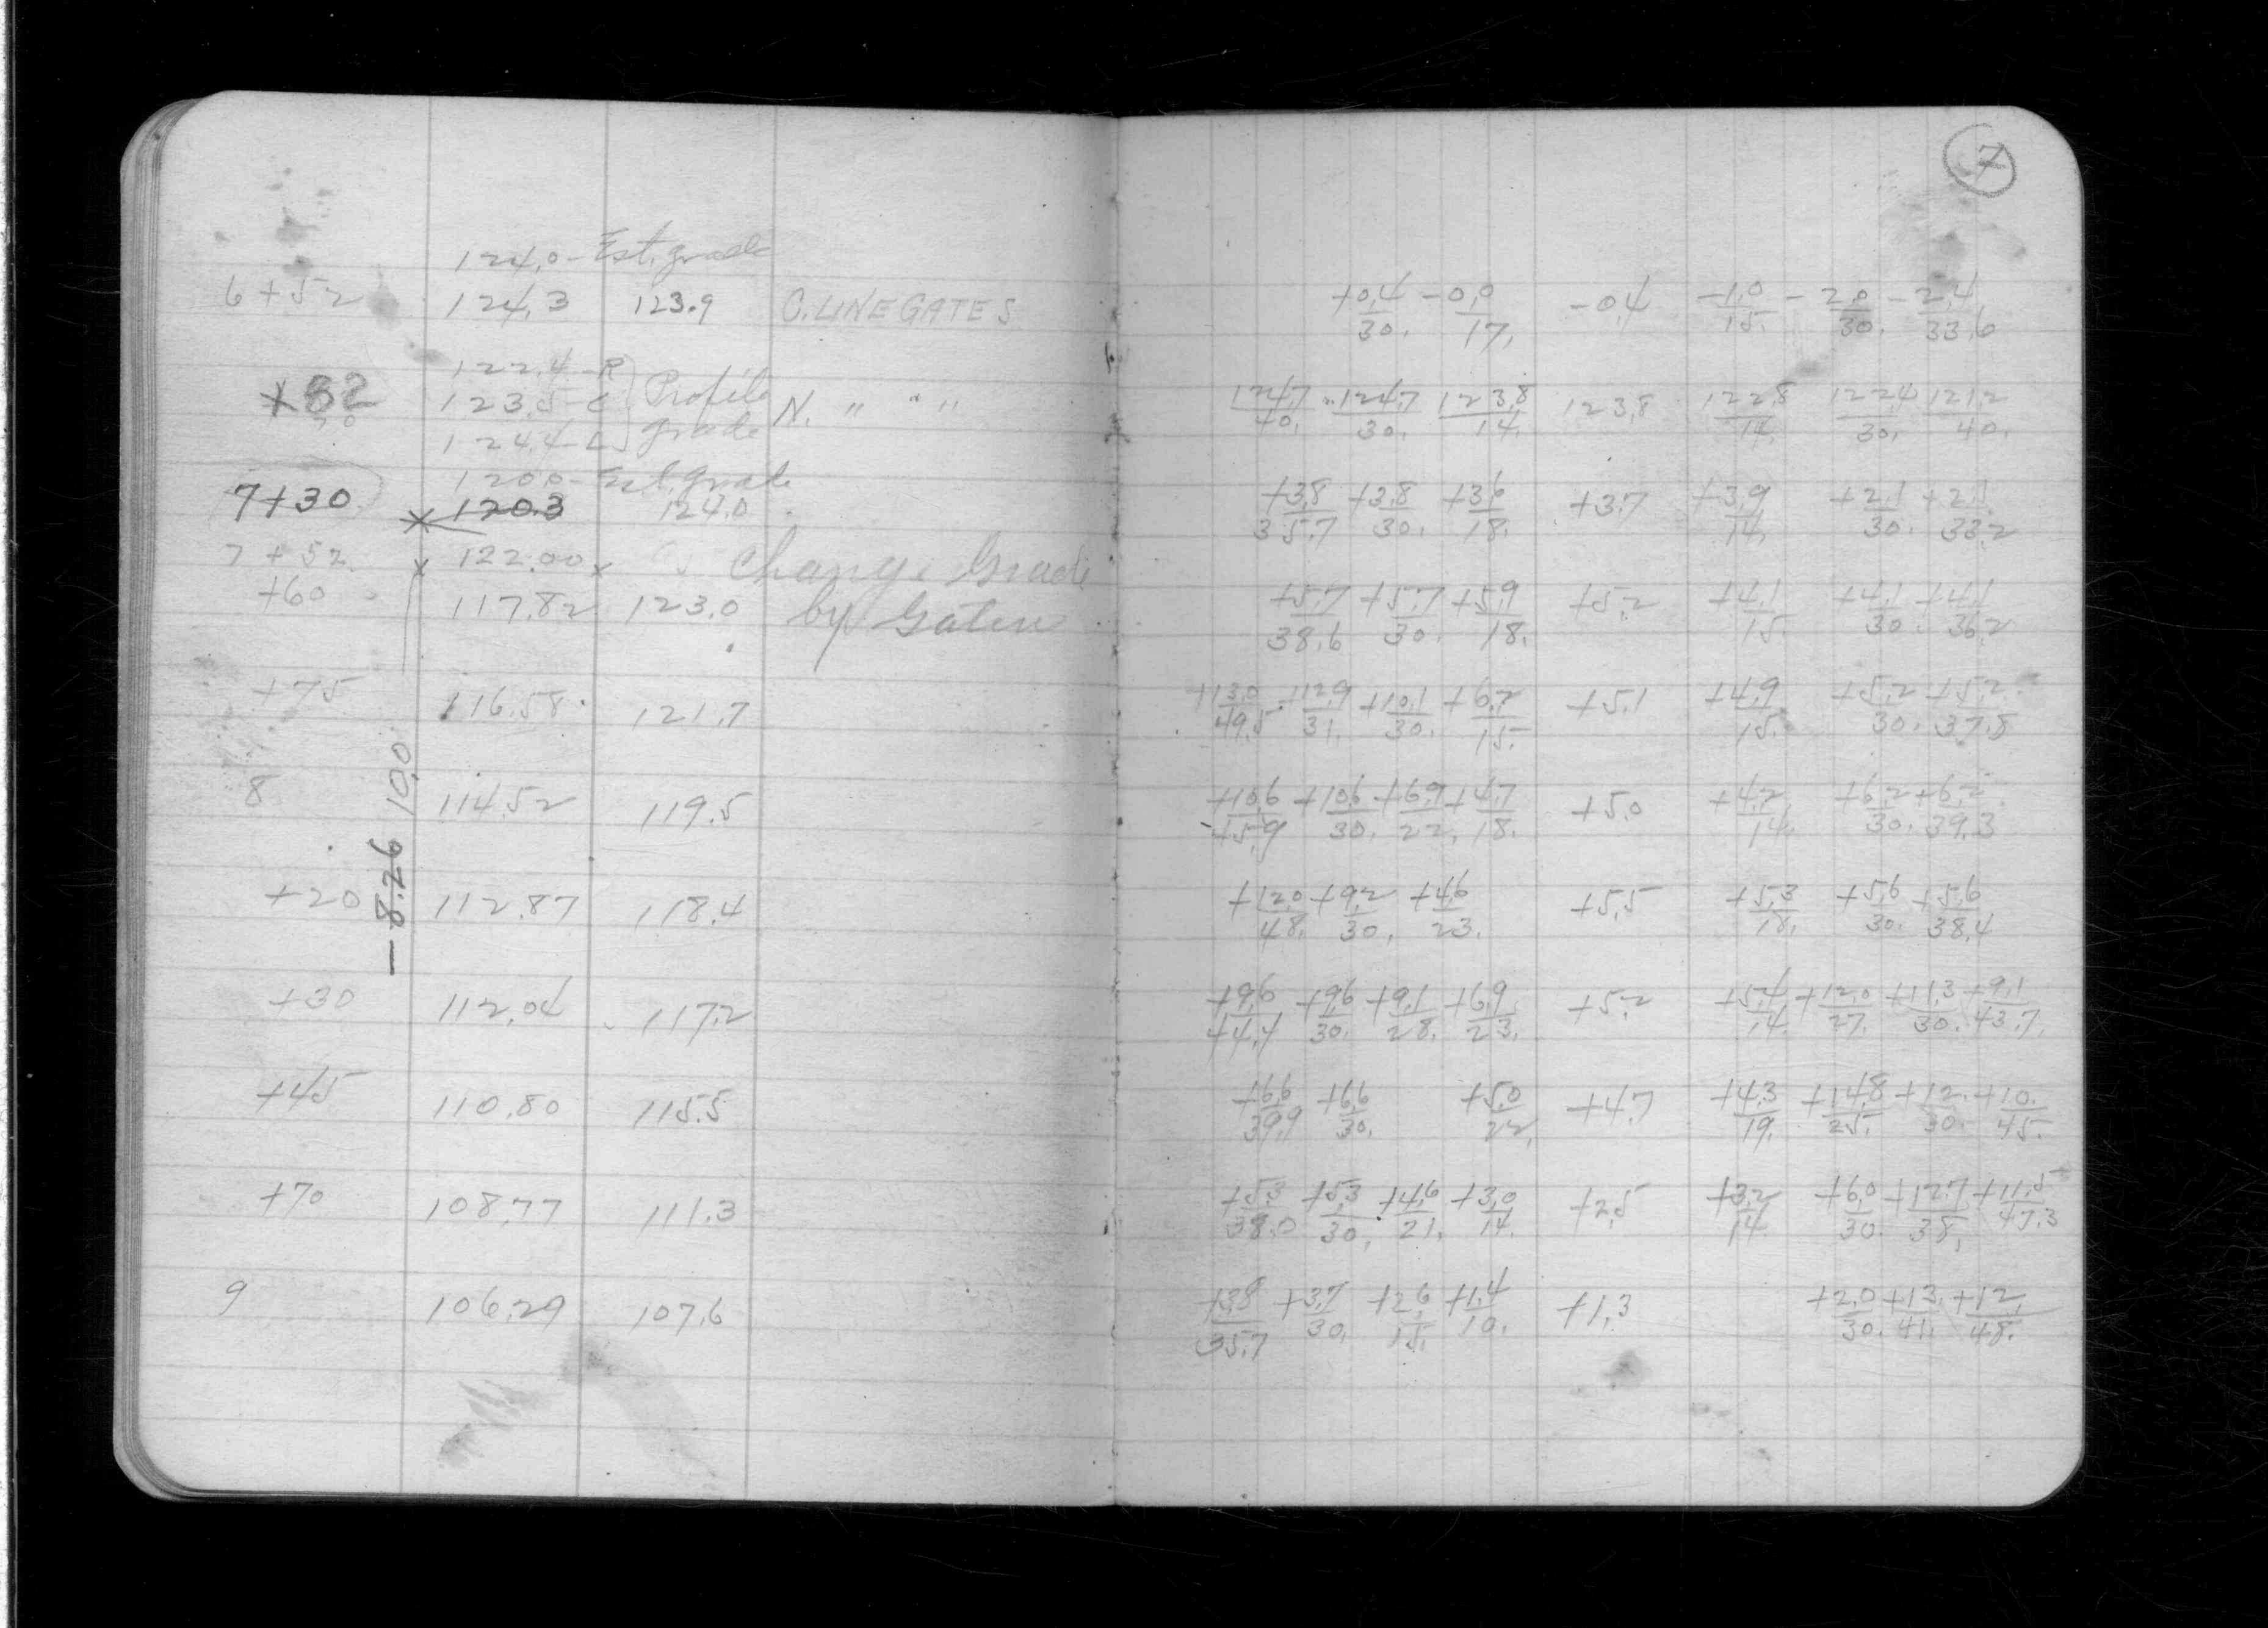 7
124.0 - Est. grade
6+52 124.3 123.9 C. LINE GATES
122.4 - R
+82 123.5 - C Profile N. " " "
30 124.4 - L grade
120.0 - Est. grade
7+30 120.3 124.0
7+52 122.00 Change Grade
+60 117.82 123.0 by Gates
+75 116.58 121.7
8 114.52 119.5
+20 112.87 118.4
+30 112.04 117.2
+45 110.80 115.5
+70 108.77 111.3
9 106.29 107.6
-8.26 10.0
+0.4/30. -0.0/17. -0.4 -1.0/15. -2.0/30. -2.4/33.6
124.7/40. 124.7/30. 123.8/14. 123.8 122.8/14. 122.4/30. 121.2/40.
+3.8/35.7 +3.8/30. +3.6/18. +3.7 +3.9/14. +2.1/30. +2.1/33.2
+5.7/38.6 +5.7/30. +5.9/18. +5.2 +4.1/15. +4.1/30. +4.1/36.2
+13.0/49.5 +12.9/31. +10.1/30. +6.2/15. +5.1 +4.9/15. +5.2/30. +5.2/37.8
+10.6/45.9 +10.6/30. +6.9/22. +4.7/18. +5.0 +4.2/14. +6.2/30. +6.2/39.3
+12.0/48. +9.2/30. +4.6/23. +5.5 +5.3/18. +5.6/30. +5.6/38.4
+9.6/44.4 +9.6/30. +9.1/28. +6.9/23. +5.2 +5.4/14. +12.0/27. +11.3/30. +9.1/43.7
+6.6/39.9 +6.6/30. +5.0/22. +4.7 +4.3/19. +14.8/25. +12./30. +10./45.
+5.3/38.0 +5.3/30. +4.6/21. +3.0/14. +2.5 +3.2/14 +6.0/30. +12.7/38. +11.5/47.3
+3.8/35.7 +3.7/30. +2.6/15. +1.4/10. +1.3 +2.0/30. +13./41. +12./48.